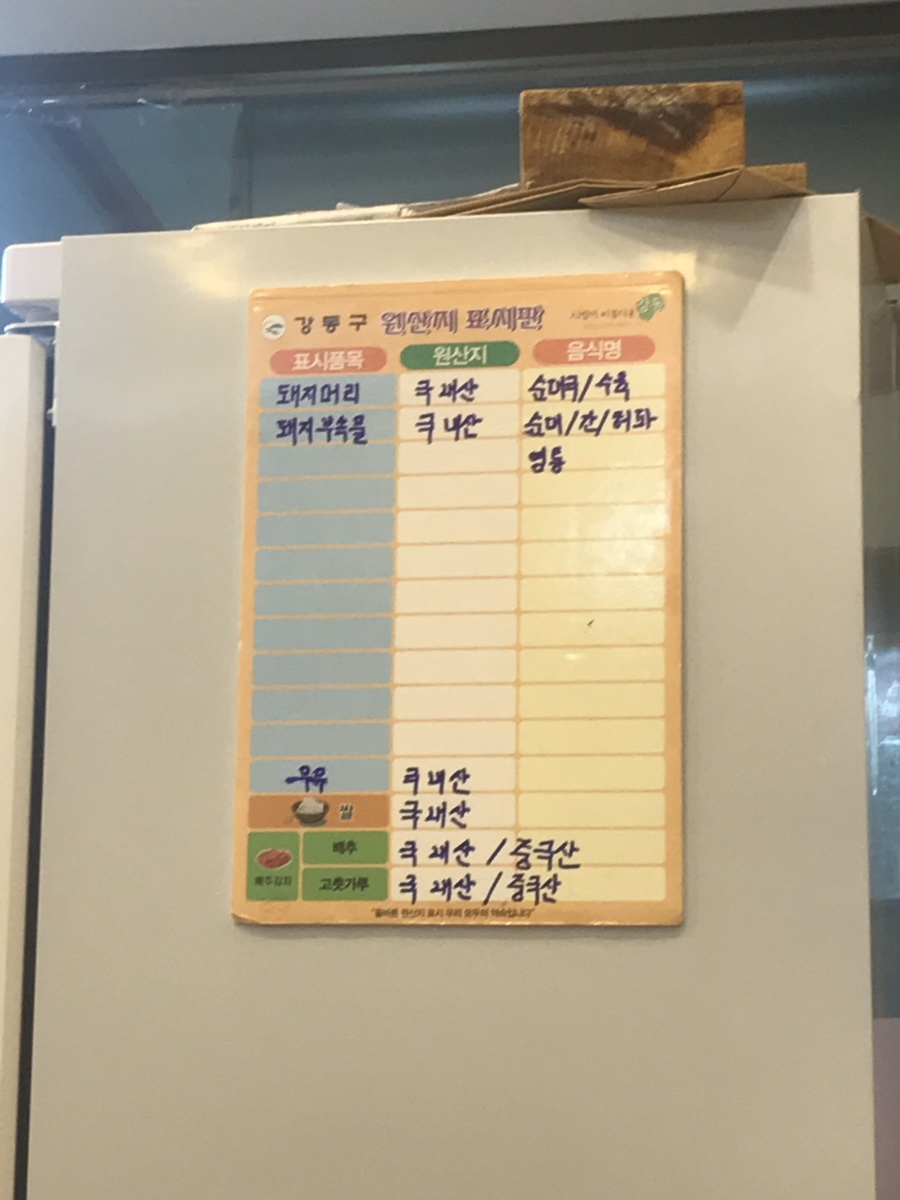 강동구 원산지 표시판 사람이 아름다운 강동
표시품목 원산지 음식명
돼지머리 국내산 순대국/수육
돼지부속물 국내산 순대/간/허파
염통
우유 국내산
쌀 국내산
배추김치 배추 국내산/중국산
고춧가루 국내산/중국산
"올바른 원산지 표시 우리 모두의 약속입니다"